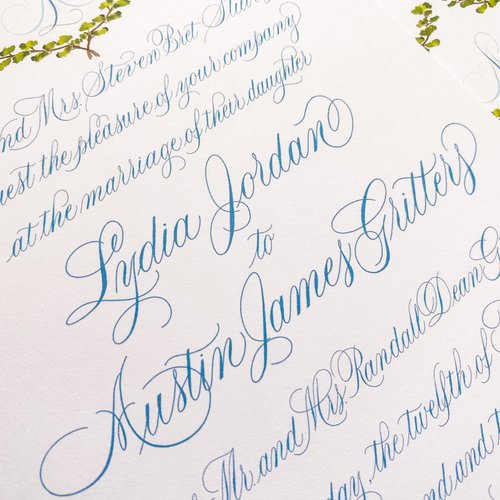 and Mrs. Steven Bret
the pleasure of your company
at the marriage of their daughter
Lydia Jordan
to
Austin James Gritters
Mr. and Mrs. Randall Dean
the twelfth of
and